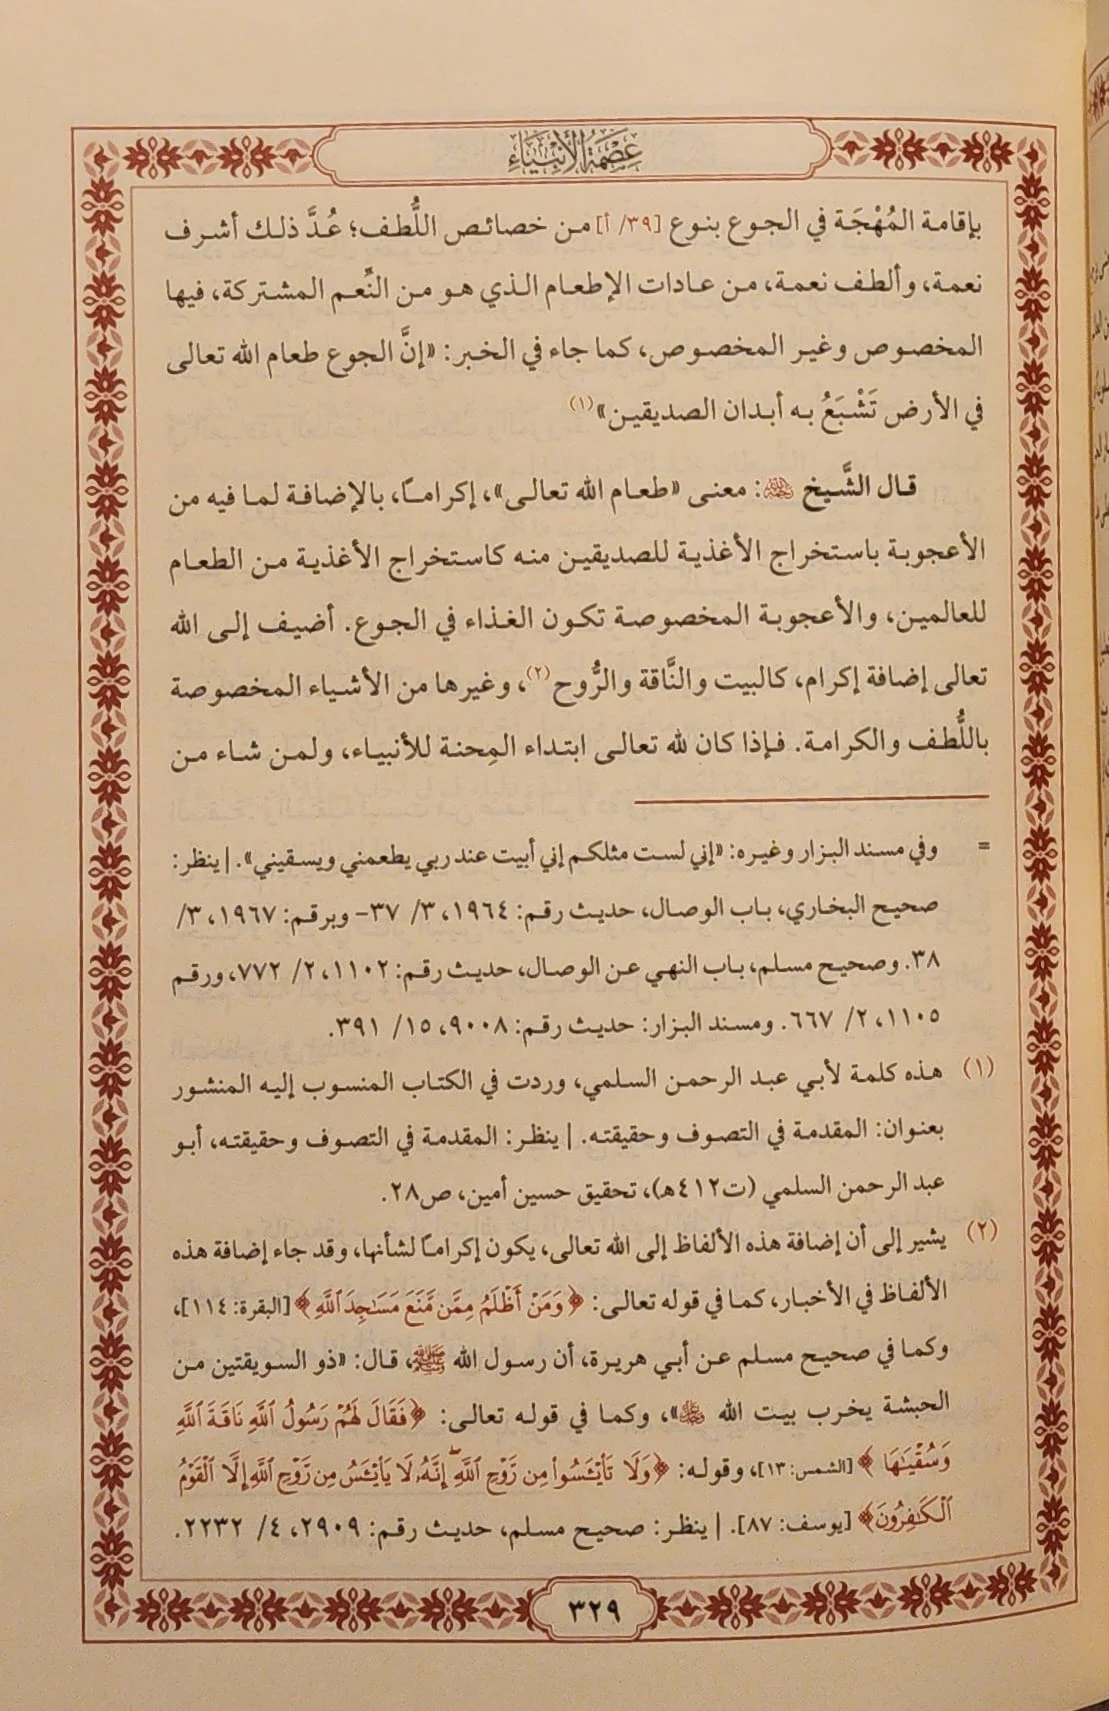 عِصْمَةُ الأَنْبِيَاءِ
بإقامة المُهْجَة في الجوع بنوع [٣٩/ أ] من خصائص اللُّطف؛ عُدَّ ذلك أشرف
نعمة، وألطف نعمة، من عادات الإطعام الذي هو من النِّعم المشتركة، فيها
المخصوص وغير المخصوص، كما جاء في الخبر: «إنَّ الجوع طعام الله تعالى
في الأرض تَشْبَعُ به أبدان الصديقين»(١)
قال الشَّيخ رحمه الله: معنى «طعام الله تعالى»، إكرامًا، بالإضافة لما فيه من
الأعجوبة باستخراج الأغذية للصديقين منه كاستخراج الأغذية من الطعام
للعالمين، والأعجوبة المخصوصة تكون الغذاء في الجوع. أضيف إلى الله
تعالى إضافة إكرام، كالبيت والنَّاقة والرُّوح(٢)، وغيرها من الأشياء المخصوصة
باللُّطف والكرامة. فإذا كان لله تعالى ابتداء المِحنة للأنبياء، ولمن شاء من
= وفي مسند البزار وغيره: «إني لست مثلكم إني أبيت عند ربي يطعمني ويسقيني». | ينظر:
صحيح البخاري، باب الوصال، حديث رقم: ١٩٦٤، ٣/ ٣٧- وبرقم: ١٩٦٧، ٣/
٣٨. وصحيح مسلم، باب النهي عن الوصال، حديث رقم: ١١٠٢، ٢/ ٧٧٢، ورقم
١١٠٥، ٢/ ٦٦٧. ومسند البزار: حديث رقم: ٩٠٠٨، ١٥/ ٣٩١.
(١) هذه كلمة لأبي عبد الرحمن السلمي، وردت في الكتاب المنسوب إليه المنشور
بعنوان: المقدمة في التصوف وحقيقته. | ينظر: المقدمة في التصوف وحقيقته، أبو
عبد الرحمن السلمي (ت٤١٢هـ)، تحقيق حسين أمين، ص٢٨.
(٢) يشير إلى أن إضافة هذه الألفاظ إلى الله تعالى، يكون إكرامًا لشأنها، وقد جاء إضافة هذه
الألفاظ في الأخبار، كما في قوله تعالى: ﴿وَمَنْ أَظْلَمُ مِمَّن مَّنَعَ مَسَٰجِدَ ٱللَّهِ﴾ [البقرة: ١١٤]،
وكما في صحيح مسلم عن أبي هريرة، أن رسول الله ﷺ، قال: «ذو السويقتين من
الحبشة يخرب بيت الله ﷻ»، وكما في قوله تعالى: ﴿فَقَالَ لَهُمْ رَسُولُ ٱللَّهِ نَاقَةَ ٱللَّهِ
وَسُقْيَٰهَا﴾ [الشمس: ١٣]، وقوله: ﴿وَلَا تَا۟يْـَٔسُوا۟ مِن رَّوْحِ ٱللَّهِ ۖ إِنَّهُۥ لَا يَا۟يْـَٔسُ مِن رَّوْحِ ٱللَّهِ إِلَّا ٱلْقَوْمُ
ٱلْكَٰفِرُونَ﴾ [يوسف: ٨٧]. | ينظر: صحيح مسلم، حديث رقم: ٢٩٠٩، ٤/ ٢٢٣٢.
٣٢٩